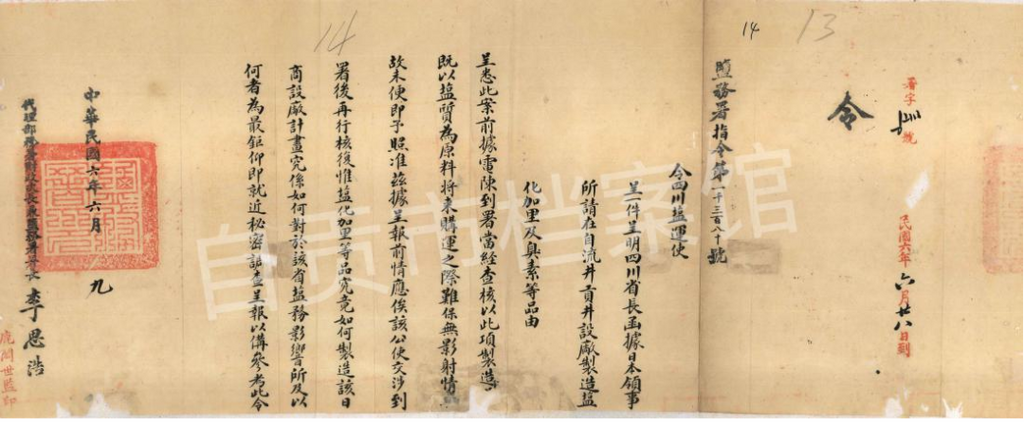 14
13
14
署字
號
民國六年六月廿八日到
令
鹽務署指令第一千三百八十號
令四川鹽運使
呈一件呈明四川省長函據日本領事
所請在自流井貢井設廠製造鹽
化加里及臭素等品由
呈悉此案前據電陳到署當經查核以此項製造
既以鹽質為原料將來購運之際難保無影射情
故未便即予照准茲據呈報前情應俟該公使交涉到
署後再行核復惟鹽化加里等品究竟如何製造該日
商設廠計畫究係如何對於該省鹽務影響所及以
何者為最鉅仰即就近秘密詣查呈報以備參考此令
中華民國六年六月 九
代理部務 李思浩
龐閱世監印
自贡市档案馆